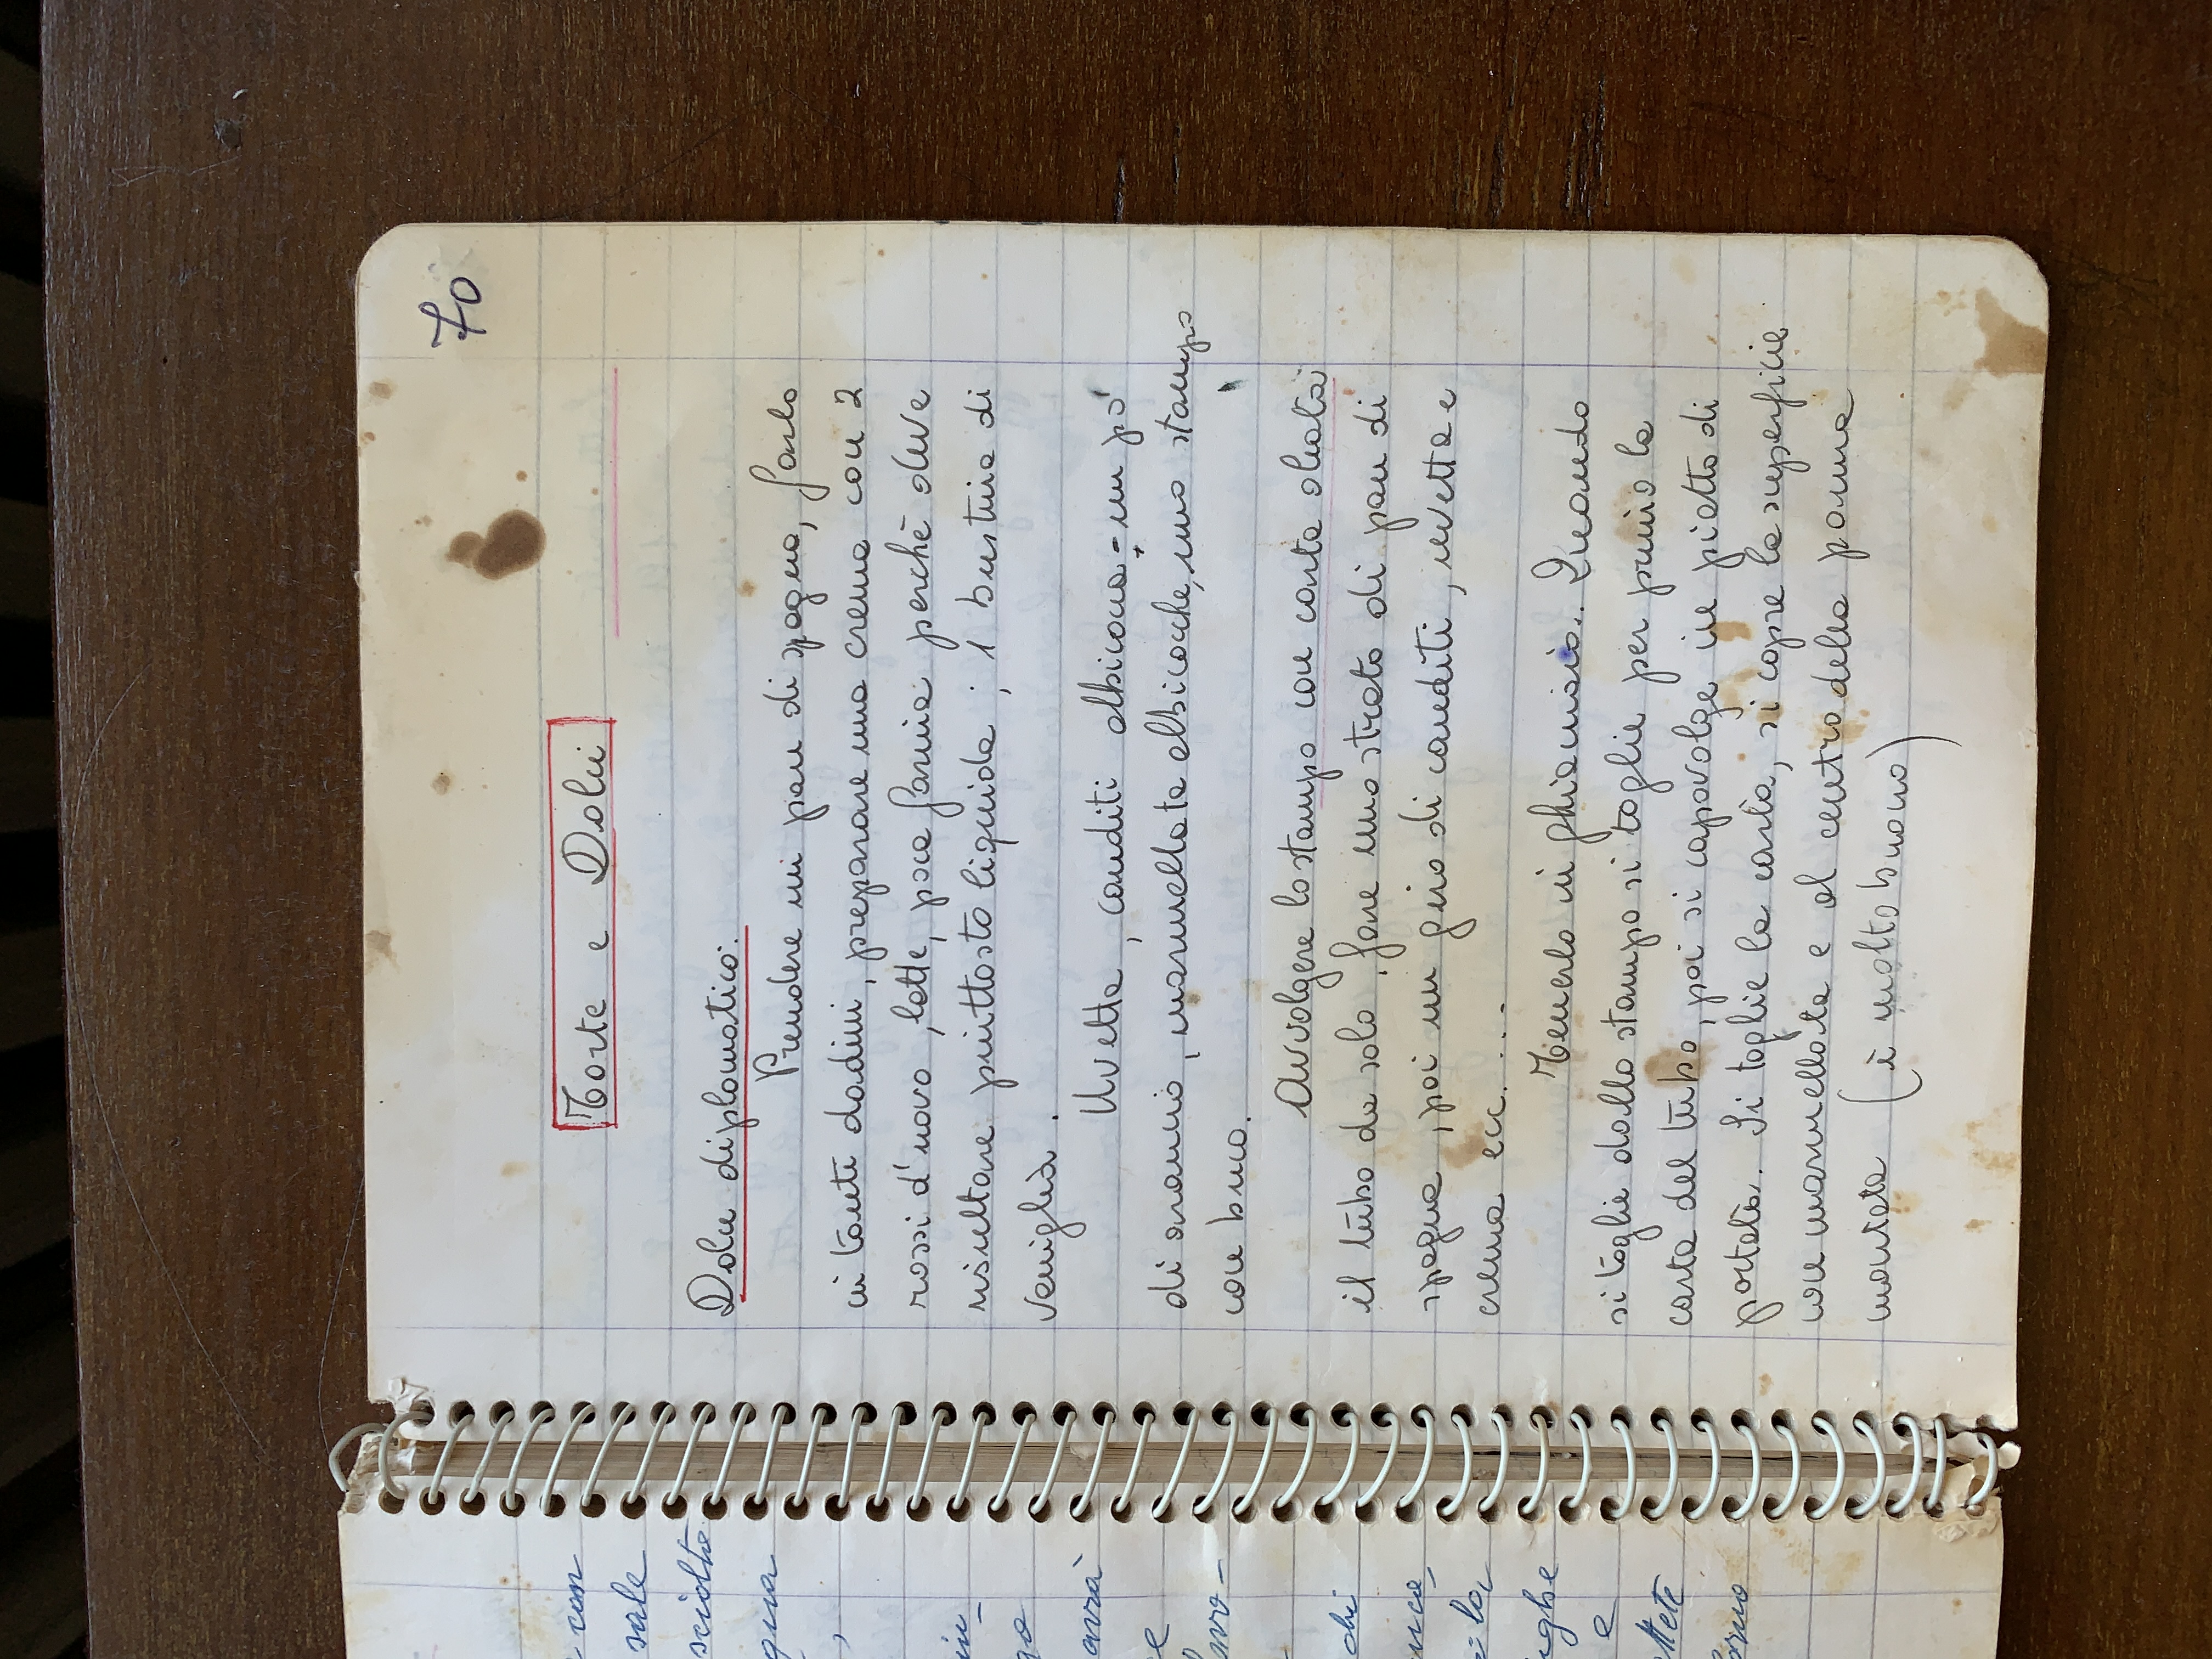 con
sale
sciolto
qua
,
in-
go
avrà
ce
oavo-
di
nca,
= la
ughe
e
ettete
orno
70
Torte e Dolci
Dolce diplomatico:
Prendere un pan di spagna, farlo
in tanti dadini, preparare una crema con 2
rossi d'uovo, latte, poca farina perchè deve
risultare piuttosto liquida; 1 bustina di
vaniglia.
Uvetta, canditi albicocca = un pò
di arancio, marmellata albicocche, uno stampo
con buco.
Avvolgere lo stampo con carta oleata
il tubo da solo, fare uno strato di pan di
spagna, poi un giro di canditi, uvetta e
crema ecc. ...
Tenerlo in ghiacciaio.. Quando
si toglie dallo stampo si toglie per primo la
carta del tubo, poi si capovolge in piatto di
portata. Si toglie la carta, si copre la superficie
con marmellata e al centro della panna
montata (è molto buono)